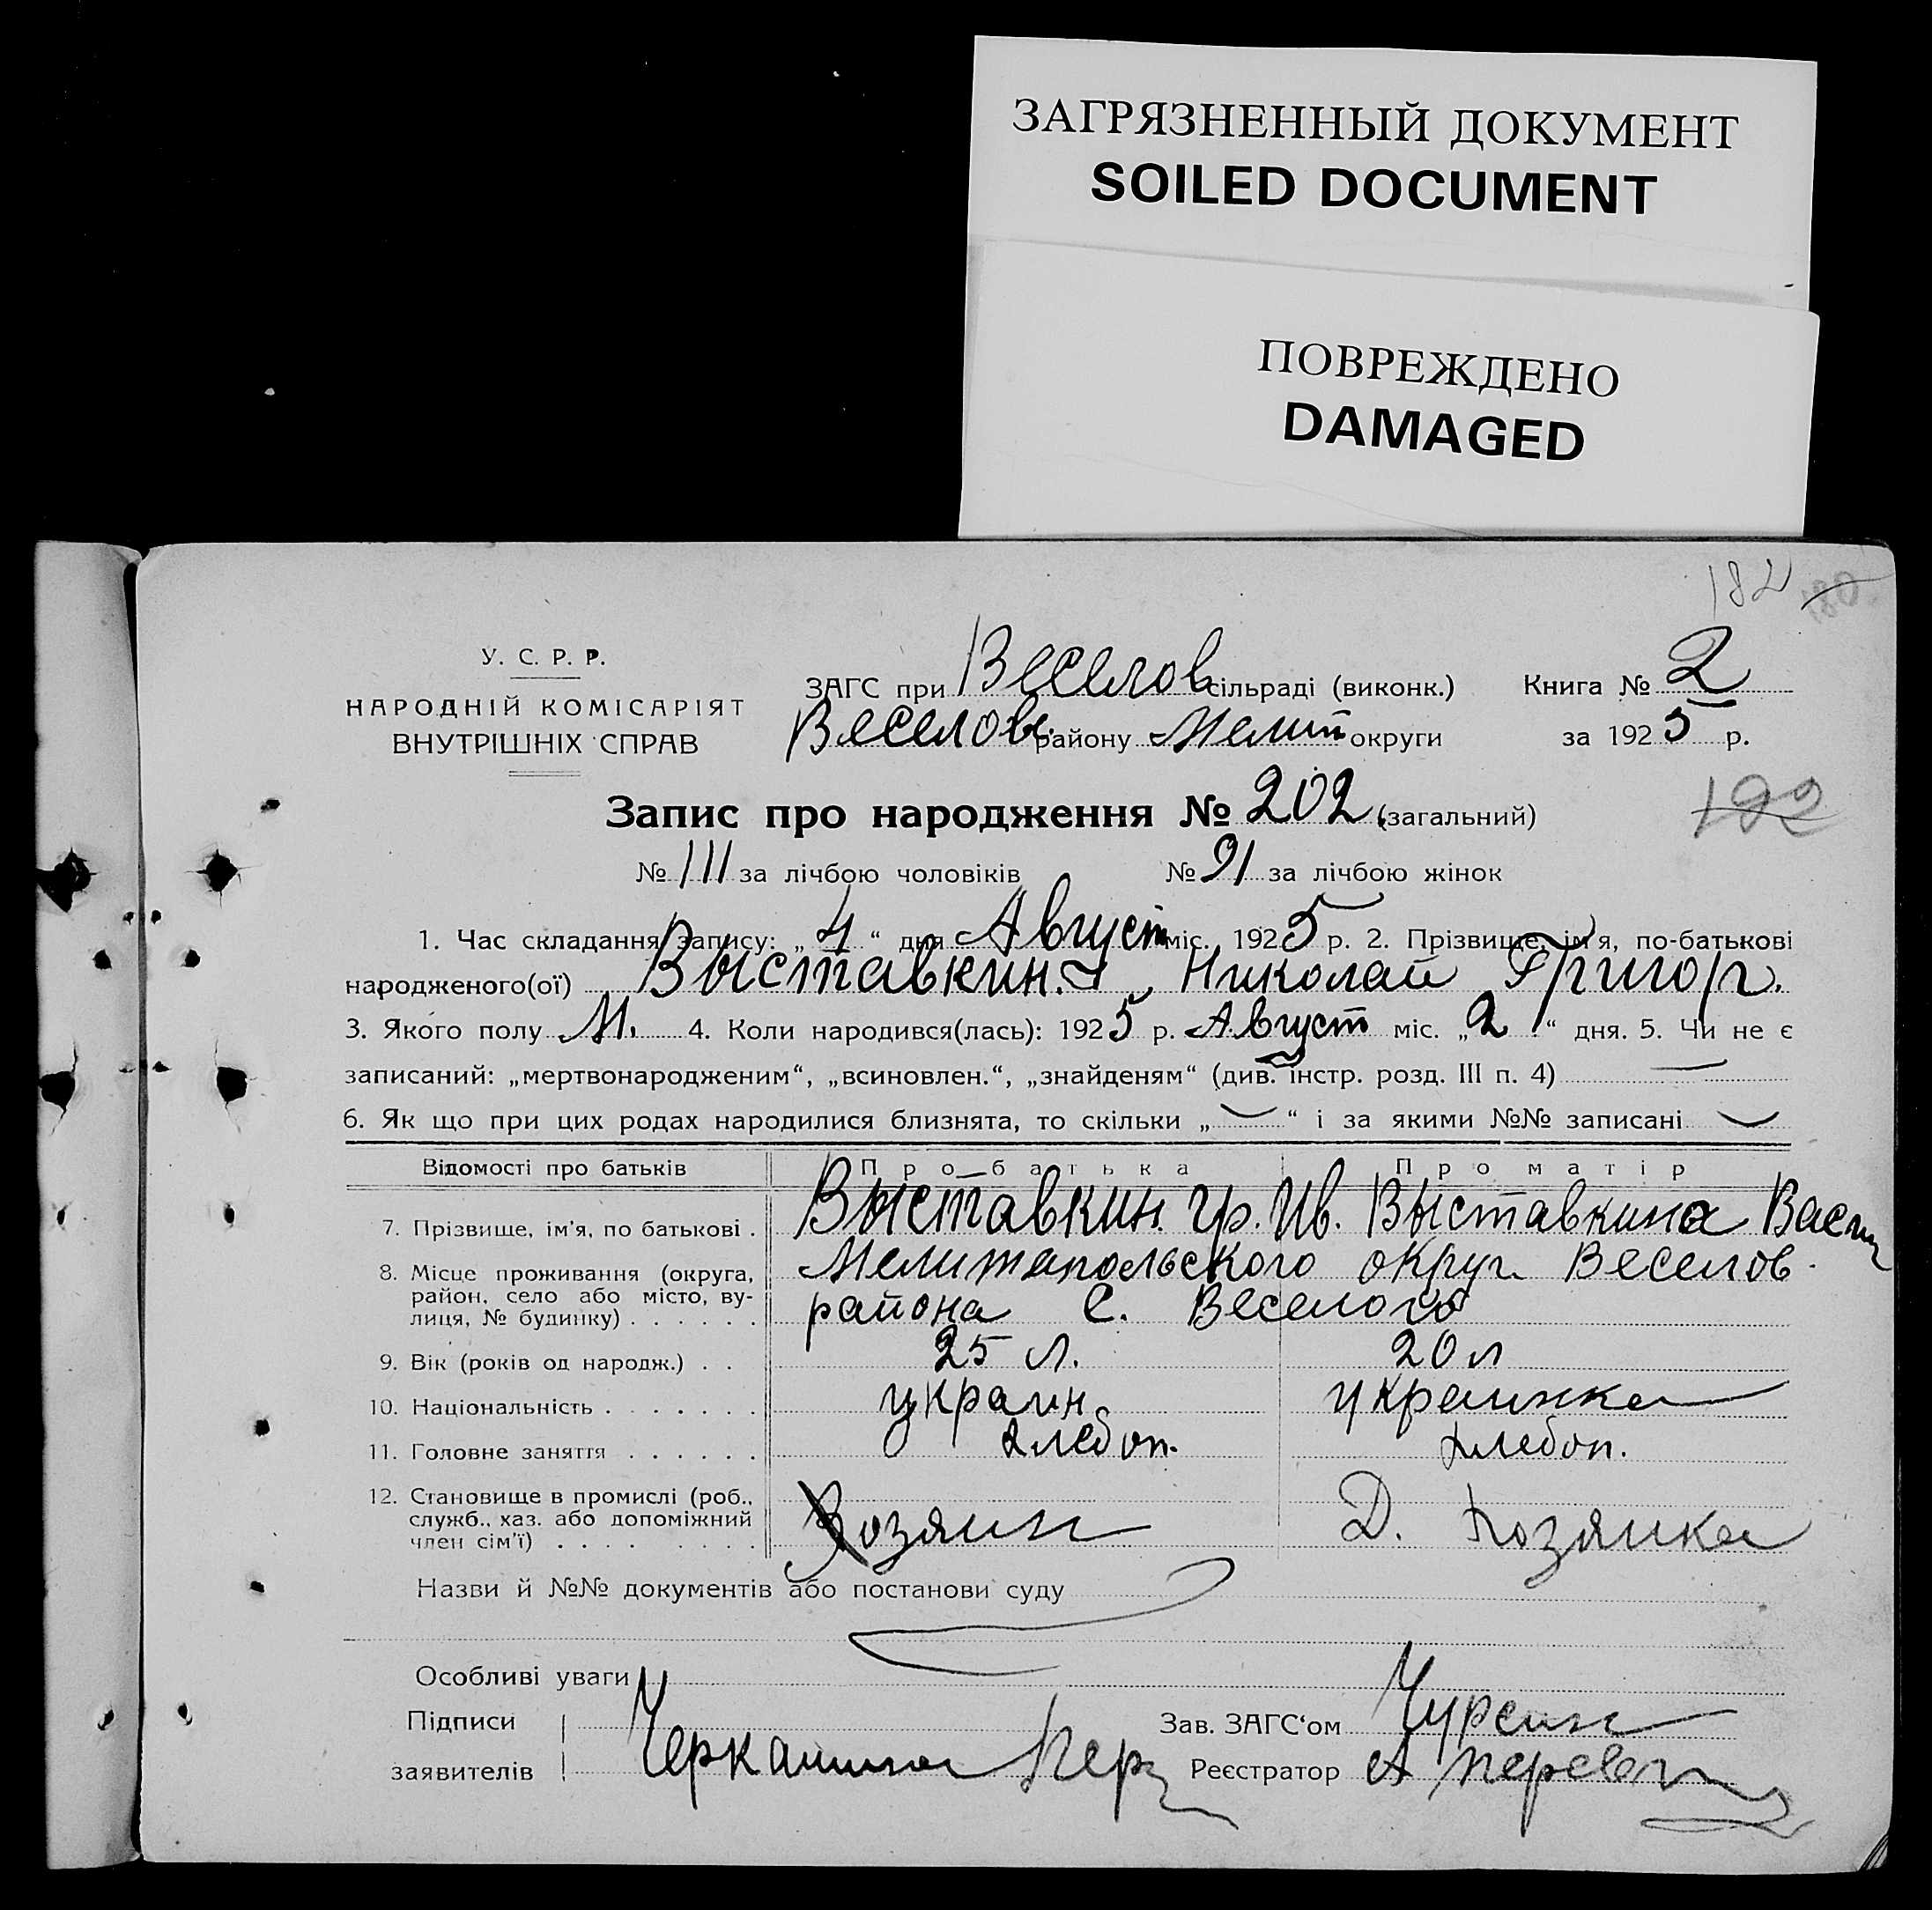 ЗАГРЯЗНЕННЫЙ ДОКУМЕНТ
SOILED DOCUMENT
ПОВРЕЖДЕНО
DAMAGED
182
У. С. Р. Р.
НАРОДНІЙ КОМІСАРІЯТ
ВНУТРІШНІХ СПРАВ
ЗАГС при Веселов сільраді (виконк.) Книга № 2
Веселовс. району Мелит округи за 1925 р.
Запис про народження № 202 (загальний)
192
№ 111 за лічбою чоловіків № 91 за лічбою жінок
1. Час складання запису: „4“ дня Август міс. 1925 р. 2. Прізвище, ім'я, по-батькові
народженого(ої) Выставкин Николай Григор.
3. Якого полу М. 4. Коли народився(лась): 1925 р. Август міс. „2“ дня. 5. Чи не є
записаний: „мертвонародженим“, „всиновлен.“, „знайденям“ (див. інстр. розд. III п. 4)
6. Як що при цих родах народилися близнята, то скільки „ “ і за якими №№ записані
Відомості про батьків Про батька Про матір
7. Прізвище, ім'я, по батькові . Выставкин. Гр. Ив. Выставкина Васи
8. Місце проживання (округа, район, село або місто, вулиця, № будинку) . . . . . . Мелитапольского округ. Веселов.
района С. Веселого
9. Вік (років од народж.) . . 25 л. 20 л
10. Національність . . . . . . . украин. украинка
11. Головне заняття . . . . . . хлебоп. хлебоп.
12. Становище в промислі (роб., служб., хаз. або допоміжний член сім'ї) . . . . . . . . Хозяин Д. Хозяика
Назви й №№ документів або постанови суду
Особливі уваги
Підписи заявителів Черкашина
Зав. ЗАГС'ом Чурсин
Реєстратор А